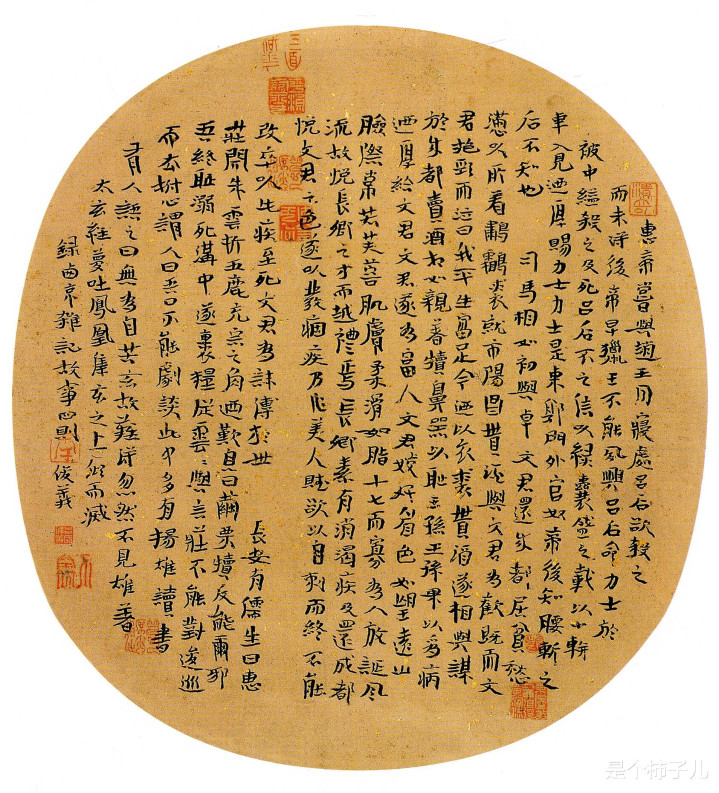 惠帝嘗與趙王同寢處呂后欲殺之
而未得後帝早獵王不能夙興呂后命力士於
被中縊殺之及死呂后不之信以綠囊盛之載以小軿
車入見迺厚賜力士力士是東郭門外官奴帝後知腰斬之
后不知也 司馬相如初與卓文君還成都居貧愁
懣以所着鷫鸘裘就市陽昌貰酒與文君為歡既而文
君抱頸而泣曰我平生富足今迺以衣裘貰酒遂相與謀
於成都賣酒相如親着犢鼻以恥王孫王孫果以為病
迺厚給文君文君遂為富人文君姣好眉色如望遠山
臉際常若芙蓉肌膚柔滑如脂十七而寡為人放誕風
流故悅長卿之才而越禮焉長卿素有消渴疾及還成都
悅文君之色遂以發痼疾乃作美人賦欲以自刺而終不能
改卒以此疾至死文君為誄傳於世 長安有儒生曰惠
莊聞朱雲折五鹿充宗之角迺歎息曰繭栗犢反能爾邪
吾終恥溺死溝中遂裹糧從雲雲與言莊不能對逡巡
而去拊心謂人曰吾口不能劇談此中多有 揚雄讀書
有人語之曰無為自苦玄故難傳忽然不見雄著
太玄經夢吐鳳凰集玄之上頃而滅
録西京雜記故事四則 俊義
是个柿子儿